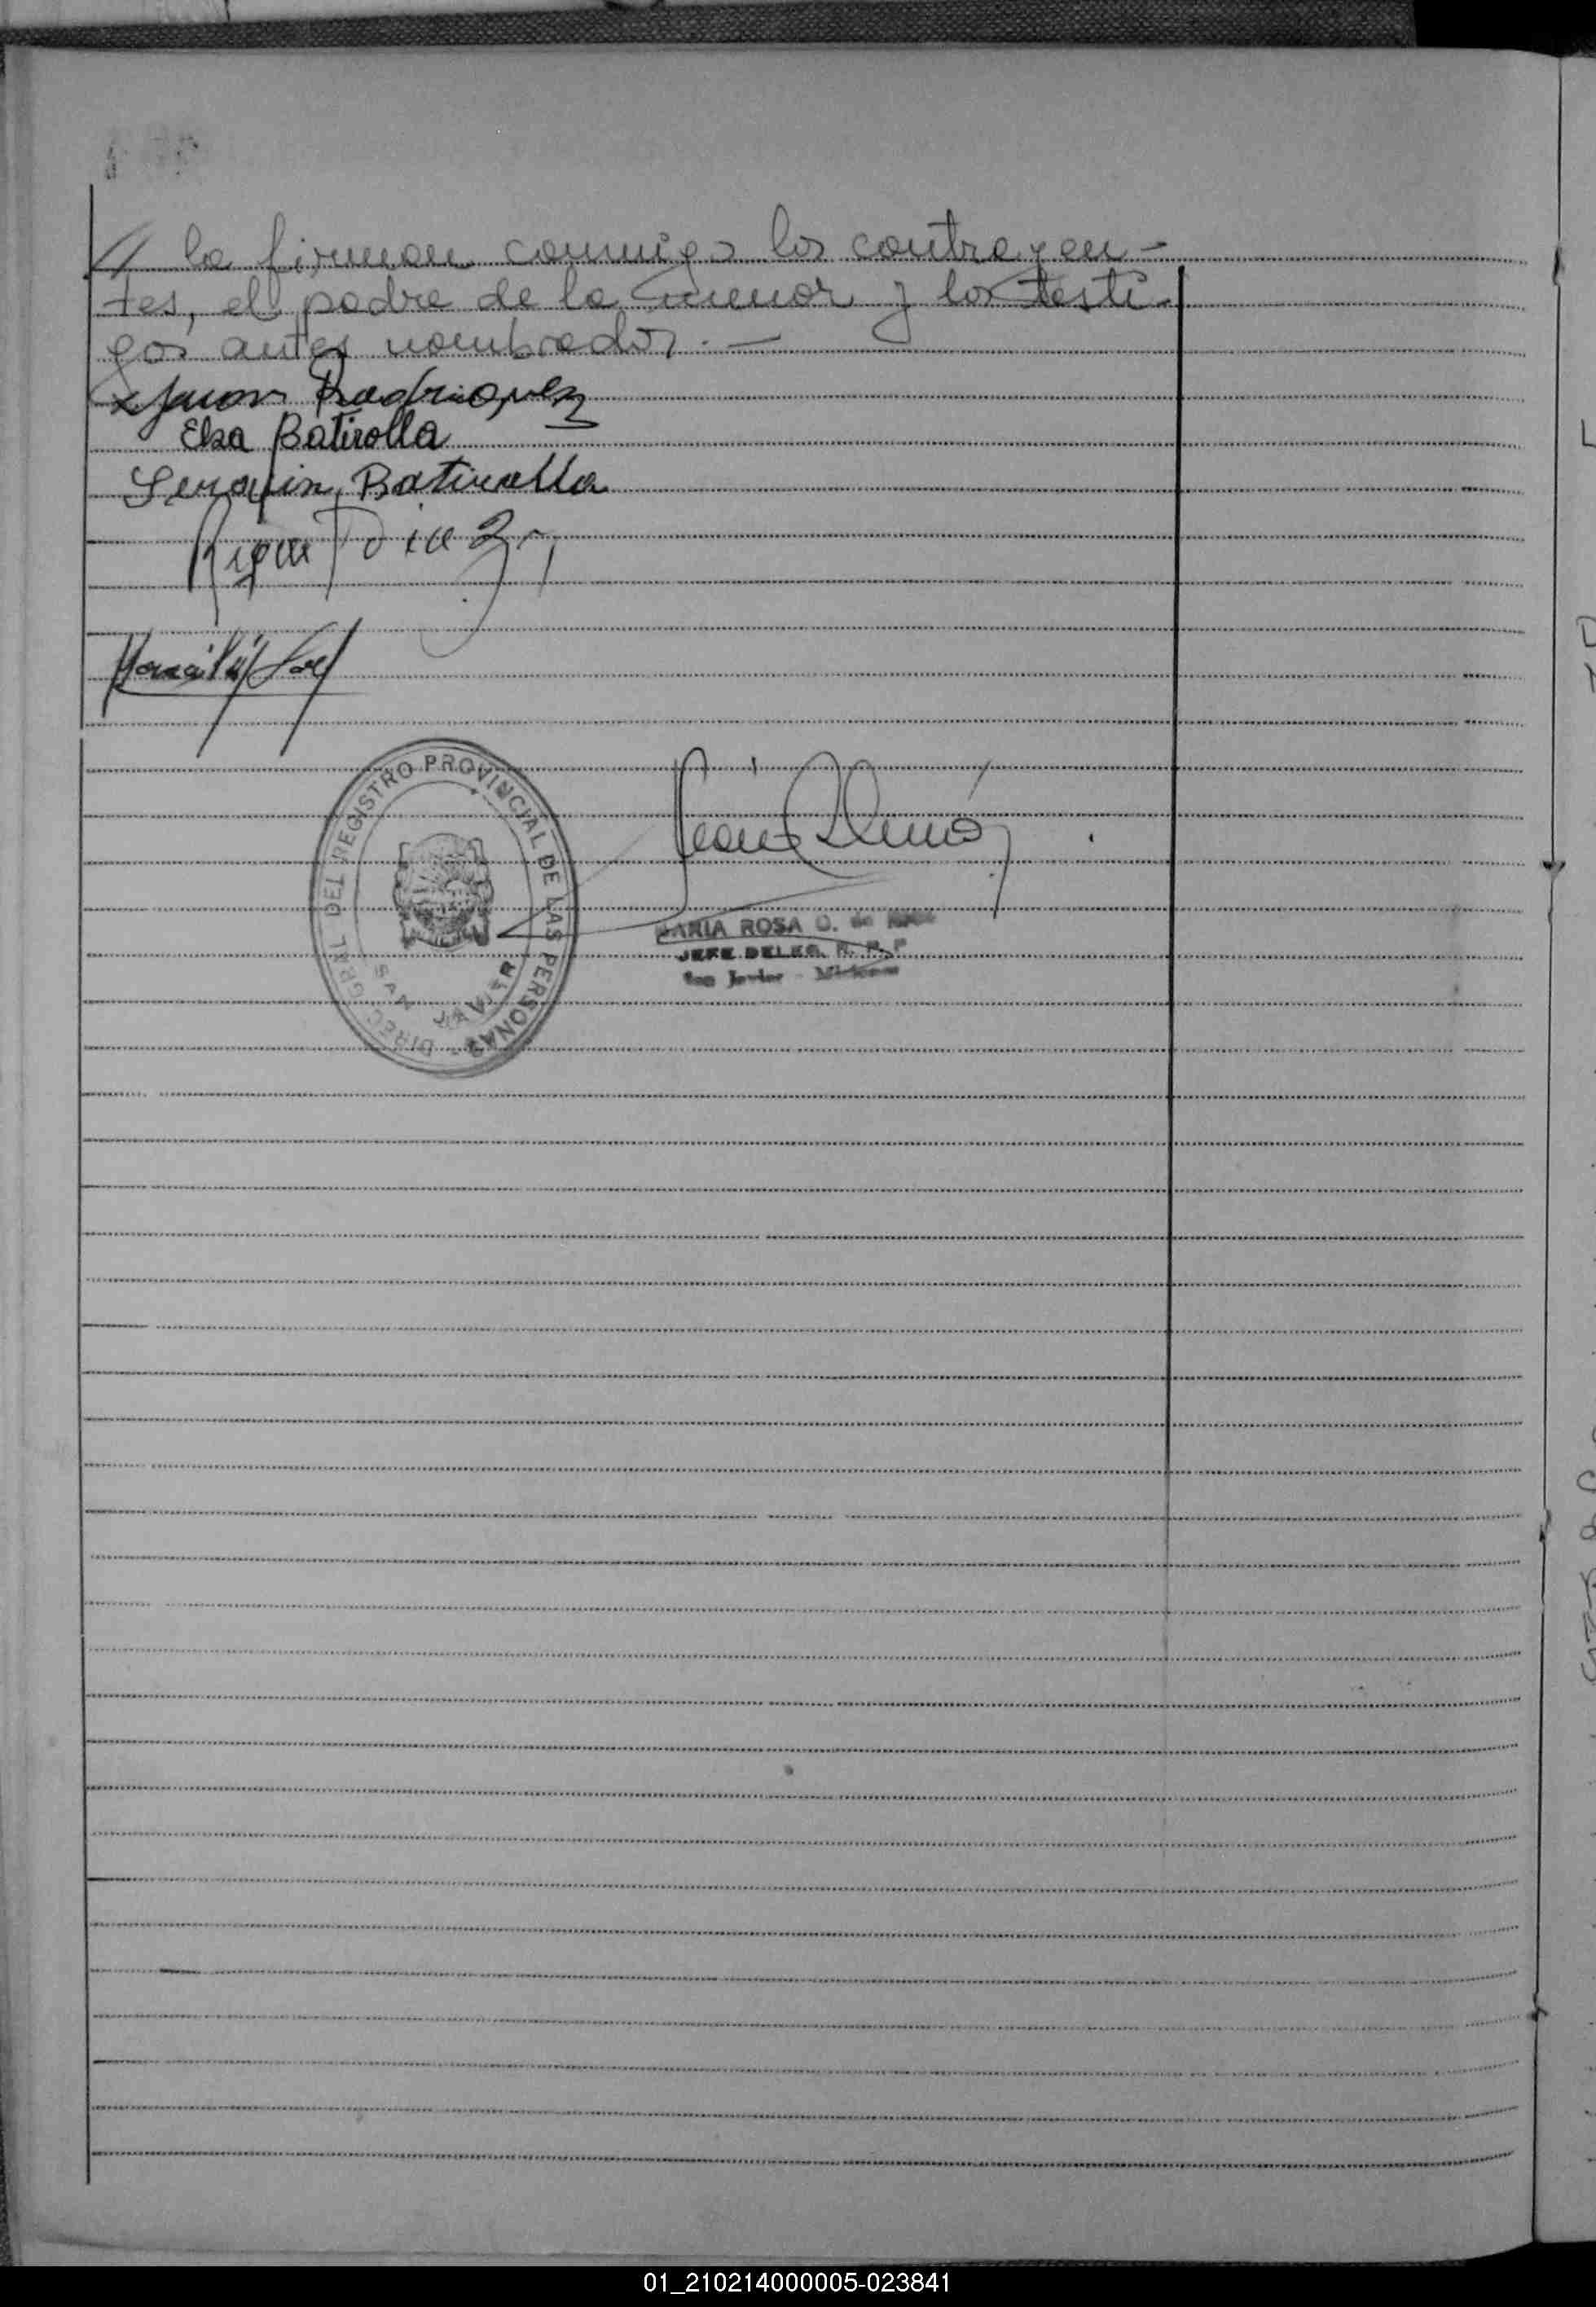 // la firman conmigo los contrayen-
tes, el padre de la menor y los testi-
gos antes nombrados. —
x Juan Rodriguez
Elsa Batirolla
Serafin Batirolla
DIREC. GRAL. DEL REGISTRO PROVINCIAL DE LAS PERSONAS
SAN JAVIER
MARIA ROSA O. de
JEFE DELEG. R. P. P.
San Javier - Misiones
01_210214000005-023841